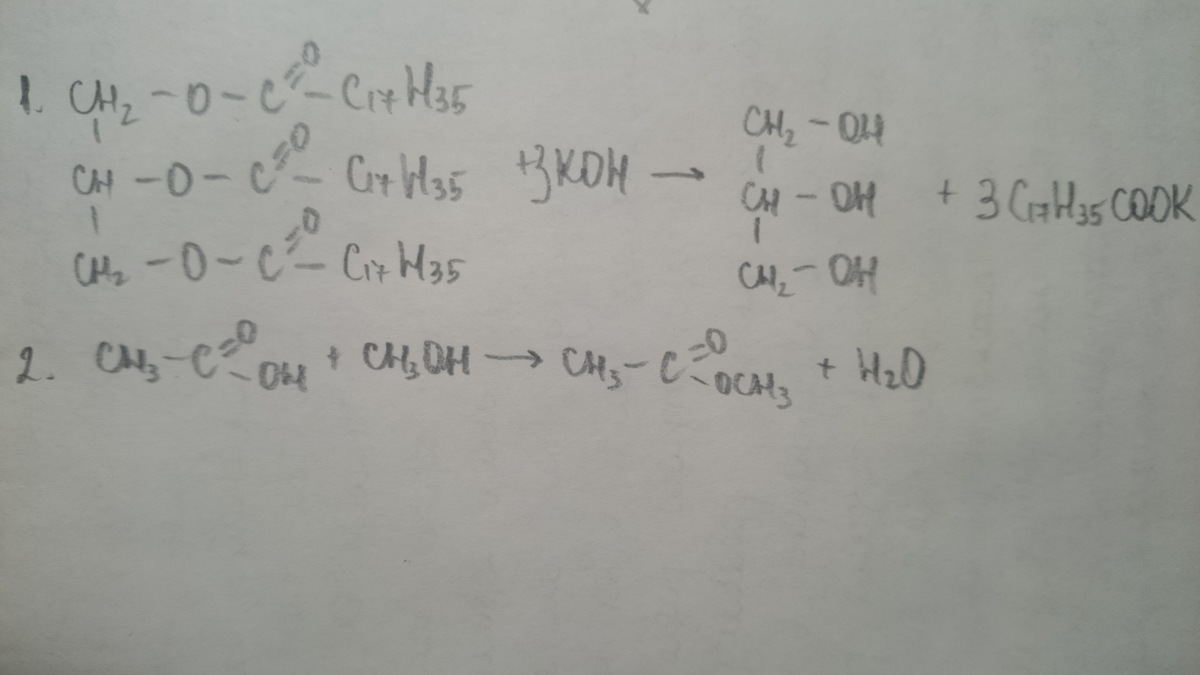 1. CH2 - O - C =O - C17H35
CH - O - C =O - C17H35 +3KOH → CH2 - OH CH - OH CH2 - OH + 3C17H35COOK
CH2 - O - C =O - C17H35
2. CH3 - C =O - OH + CH3OH → CH3 - C =O - OCH3 + H2O